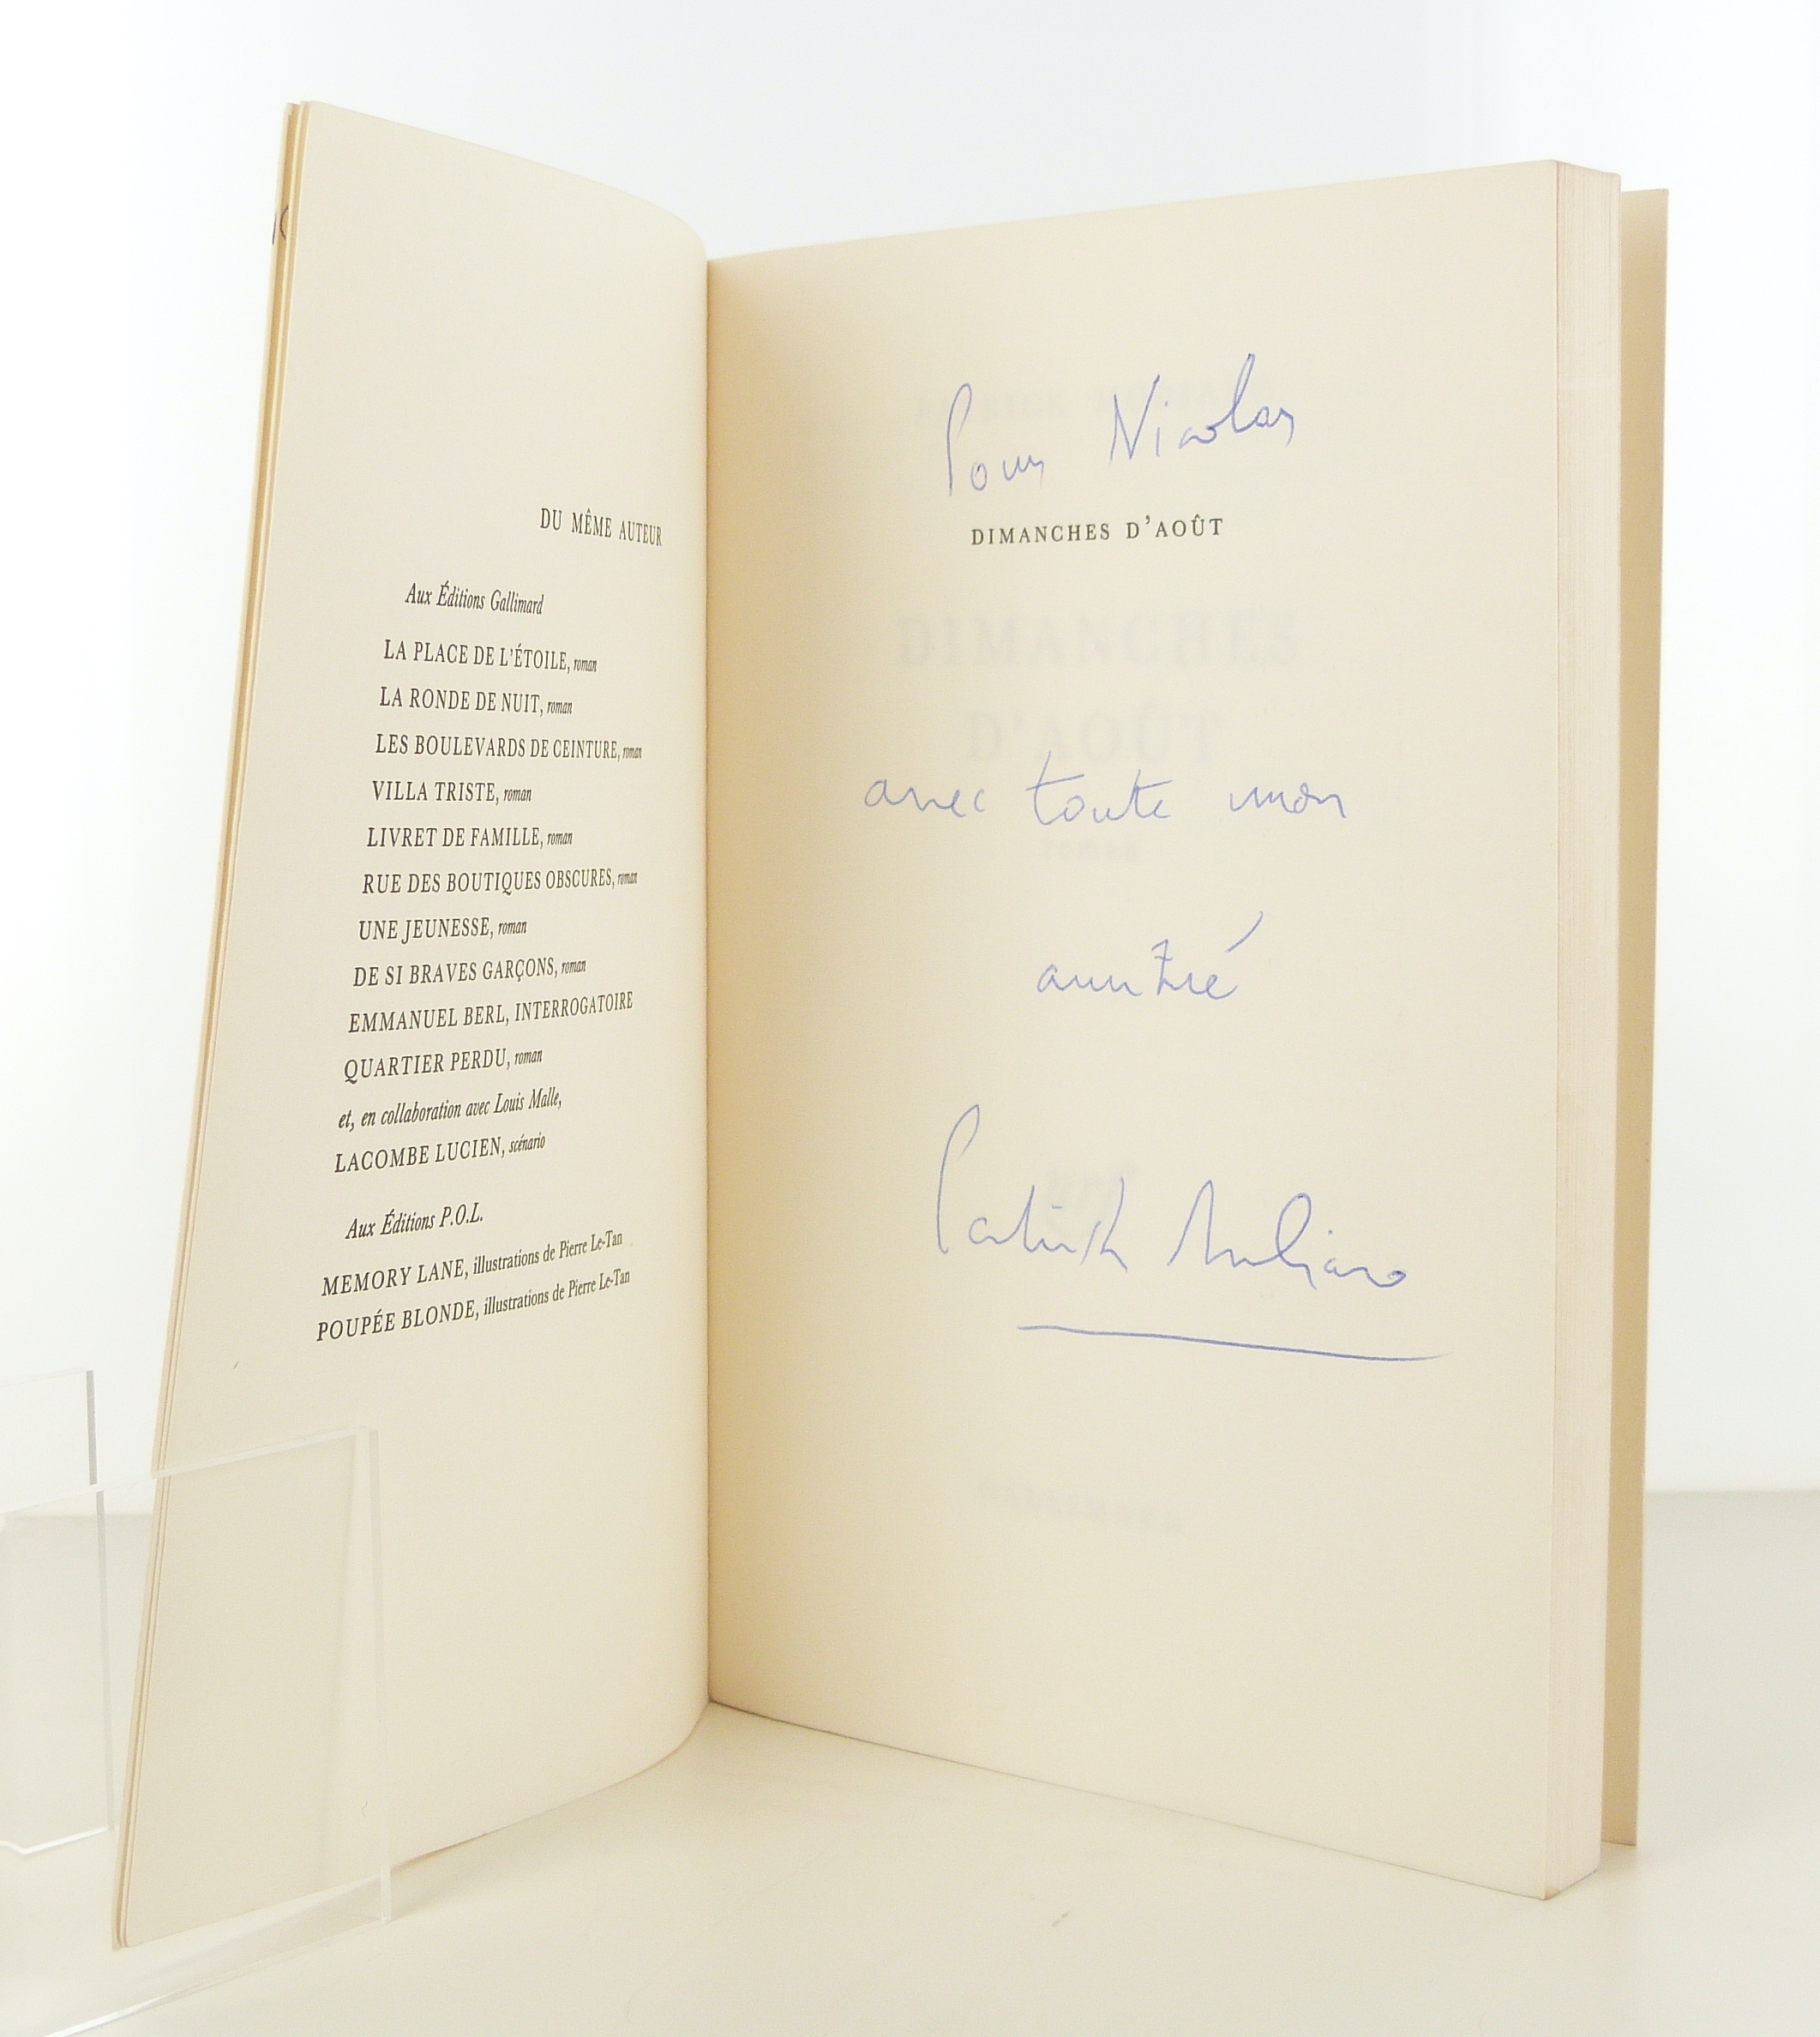 DU MÊME AUTEUR
Aux Éditions Gallimard
LA PLACE DE L'ÉTOILE, roman
LA RONDE DE NUIT, roman
LES BOULEVARDS DE CEINTURE, roman
VILLA TRISTE, roman
LIVRET DE FAMILLE, roman
RUE DES BOUTIQUES OBSCURES, roman
UNE JEUNESSE, roman
DE SI BRAVES GARÇONS, roman
EMMANUEL BERL, INTERROGATOIRE
QUARTIER PERDU, roman
et, en collaboration avec Louis Malle,
LACOMBE LUCIEN, scénario
Aux Éditions P.O.L.
MEMORY LANE, illustrations de Pierre Le-Tan
POUPÉE BLONDE, illustrations de Pierre Le-Tan
Pour Nicolas
DIMANCHES D'AOÛT
DIMANCHES
D'AOÛT
avec toute mon
amitié
Patrick Modiano